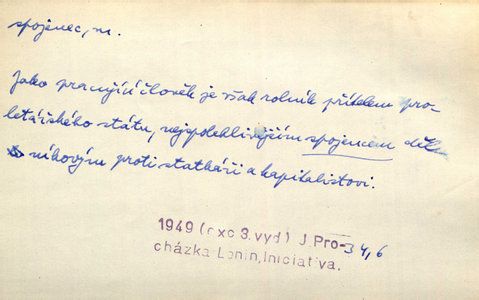 spojenec, m.
Jako pracující člověk je však rolník přítelem pro-
letářského státu, nejspolehlivějším spojencem děl-
níkovým proti statkáři a kapitalistovi.
1949 (exc 3.vyd) J.Pro- 34,6
cházka Lenin,Iniciativa.